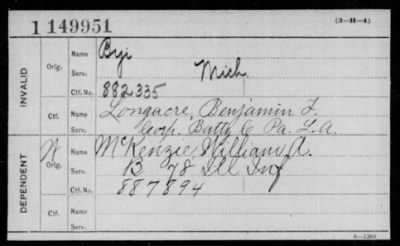 (3-H-4)
1 149951
INVALID
Orig.
Name Byi
Serv. Mich.
Ctf. No. 882335
Ctf.
Name Longacre, Benjamin F.
Serv. Corp. Batty C Pa. L. A.
DEPENDENT
W
Orig.
Name McKenzie William A.
Serv. B 78 Ill Inf
Ctf. No. 887894
Ctf.
Name
Serv.